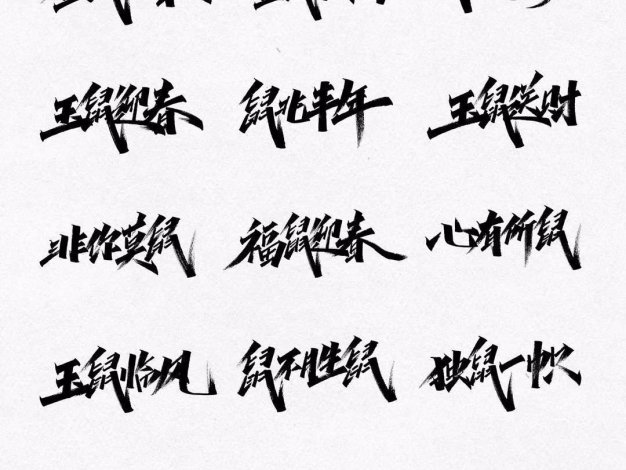 玉鼠迎春 鼠兆丰年 玉鼠送财
非你莫鼠 福鼠迎春 心有所鼠
玉鼠临风 鼠不胜鼠 独鼠一帜